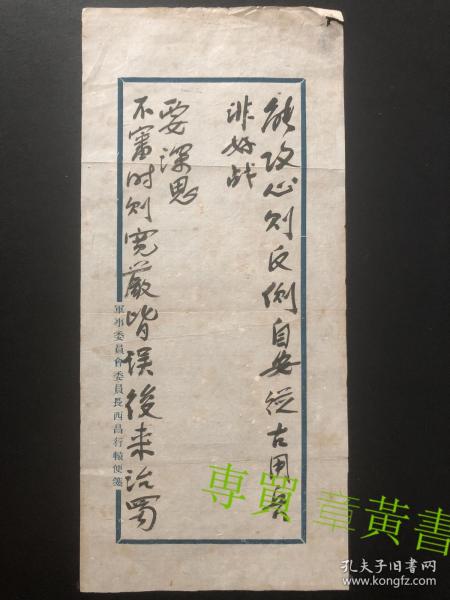 能攻心则反侧自安從古用兵
非好战
不審时则宽嚴皆误後来治蜀
要深思
軍事委員會委員長西昌行轅便箋
專買 章黃書
孔夫子旧书网
www.kongfz.com